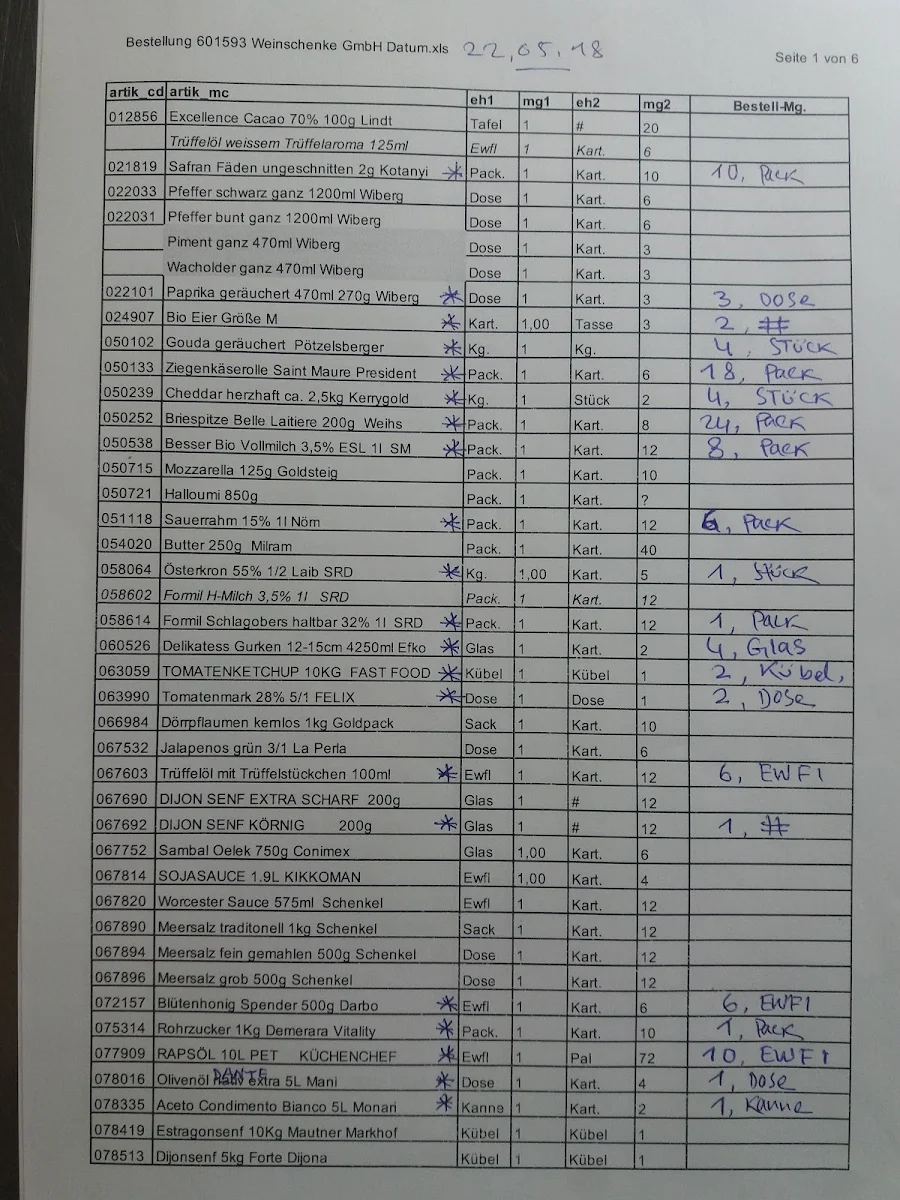 Bestellung 601593 Weinschenke GmbH Datum.xls 22,05.18
Seite 1 von 6
artik_cd artik_mc eh1 mg1 eh2 mg2 Bestell-Mg.
012856 Excellence Cacao 70% 100g Lindt Tafel 1 # 20
Trüffelöl weissem Trüffelaroma 125ml Ewfl 1 Kart. 6
021819 Safran Fäden ungeschnitten 2g Kotanyi * Pack. 1 Kart. 10 10, Pack
022033 Pfeffer schwarz ganz 1200ml Wiberg Dose 1 Kart. 6
022031 Pfeffer bunt ganz 1200ml Wiberg Dose 1 Kart. 6
Piment ganz 470ml Wiberg Dose 1 Kart. 3
Wacholder ganz 470ml Wiberg Dose 1 Kart. 3
022101 Paprika geräuchert 470ml 270g Wiberg * Dose 1 Kart. 3 3, Dose
024907 Bio Eier Größe M * Kart. 1,00 Tasse 3 2, #
050102 Gouda geräuchert Pötzelsberger * Kg. 1 Kg. 4, STÜCK
050133 Ziegenkäserolle Saint Maure President * Pack. 1 Kart. 6 18, Pack
050239 Cheddar herzhaft ca. 2,5kg Kerrygold * Kg. 1 Stück 2 4, STÜCK
050252 Briespitze Belle Laitiere 200g Weihs * Pack. 1 Kart. 8 24, Pack
050538 Besser Bio Vollmilch 3,5% ESL 1l SM * Pack. 1 Kart. 12 8, Pack
050715 Mozzarella 125g Goldsteig Pack. 1 Kart. 10
050721 Halloumi 850g Pack. 1 Kart. ?
051118 Sauerrahm 15% 1l Nöm * Pack. 1 Kart. 12 6, Pack
054020 Butter 250g Milram Pack. 1 Kart. 40
058064 Österkron 55% 1/2 Laib SRD * Kg. 1,00 Kart. 5 1, Stück
058602 Formil H-Milch 3,5% 1l SRD Pack. 1 Kart. 12
058614 Formil Schlagobers haltbar 32% 1l SRD * Pack. 1 Kart. 12 1, Pack
060526 Delikatess Gurken 12-15cm 4250ml Efko * Glas 1 Kart. 2 4, Glas
063059 TOMATENKETCHUP 10KG FAST FOOD * Kübel 1 Kübel 1 2, Kübel,
063990 Tomatenmark 28% 5/1 FELIX * Dose 1 Dose 1 2, Dose
066984 Dörrpflaumen kernlos 1kg Goldpack Sack 1 Kart. 10
067532 Jalapenos grün 3/1 La Perla Dose 1 Kart. 6
067603 Trüffelöl mit Trüffelstückchen 100ml * Ewfl 1 Kart. 12 6, EWFl
067690 DIJON SENF EXTRA SCHARF 200g Glas 1 # 12
067692 DIJON SENF KÖRNIG 200g * Glas 1 # 12 1, #
067752 Sambal Oelek 750g Conimex Glas 1,00 Kart. 6
067814 SOJASAUCE 1.9L KIKKOMAN Ewfl 1,00 Kart. 4
067820 Worcester Sauce 575ml Schenkel Ewfl 1 Kart. 12
067890 Meersalz traditonell 1kg Schenkel Sack 1 Kart. 12
067894 Meersalz fein gemahlen 500g Schenkel Dose 1 Kart. 12
067896 Meersalz grob 500g Schenkel Dose 1 Kart. 12
072157 Blütenhonig Spender 500g Darbo * Ewfl 1 Kart. 6 6, EWFl
075314 Rohrzucker 1Kg Demerara Vitality * Pack. 1 Kart. 10 1, Pack
077909 RAPSÖL 10L PET KÜCHENCHEF * Ewfl 1 Pal 72 10, EWFl
078016 Olivenöl nativ DANTE extra 5L Mani * Dose 1 Kart. 4 1, Dose
078335 Aceto Condimento Bianco 5L Monari * Kanne 1 Kart. 2 1, Kanne
078419 Estragonsenf 10Kg Mautner Markhof Kübel 1 Kübel 1
078513 Dijonsenf 5kg Forte Dijona Kübel 1 Kübel 1